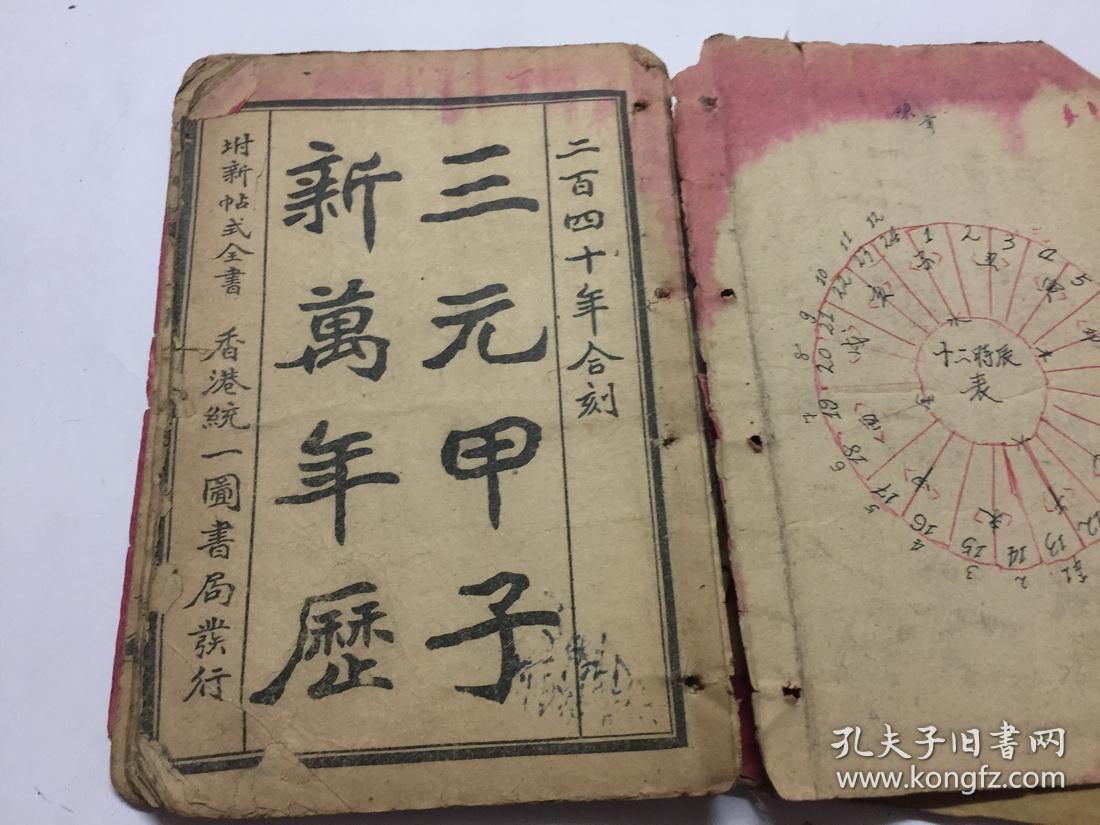 二百四十年合刻
三元甲子
新萬年歷
坿新帖式全書 香港統一圖書局發行
十二時辰
表
1
2
3
4
5
12
13
14
15
16
17
18
19
20
21
22
23
24
2
3
4
5
6
7
8
9
10
11
12
孔夫子旧书网
www.kongfz.com